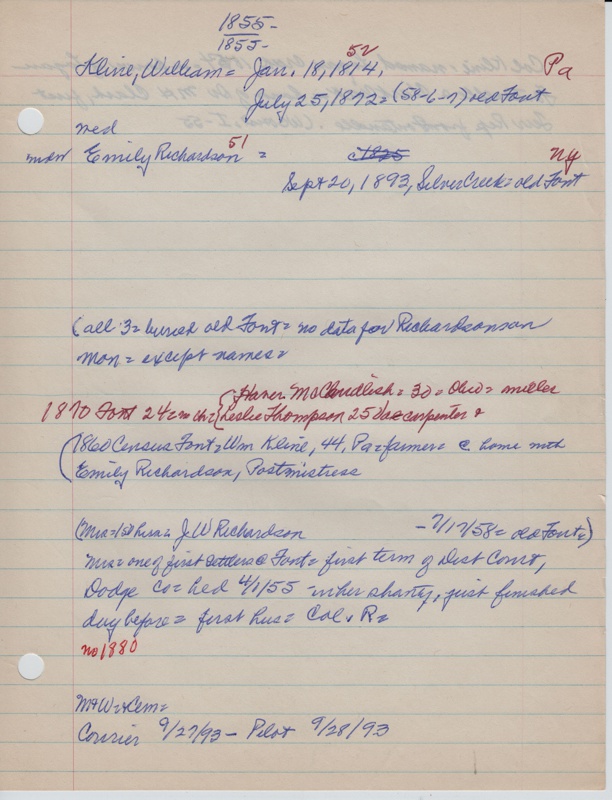 1855-
1855-
52
Kline, William = Jan. 18, 1814, Pa
July 25, 1872 = (58-6-7) old Font
med
51
Emily Richardson = c1825 Ny
Sept 20, 1893, Silver Creek = old Font
(all 3 = buried old Font = no data for Richardson on
mon = except names =
McCandlish = 30 = Ohio = miller
1870 Font 24 = {Leslie Thompson 25 carpenter &
(1860 Census Font = Wm Kline, 44, Pa = farmer = @ home with
Emily Richardson, Postmistress
(Mrs = 1st J. W Richardson - 7/17/58 = old Font)
Mrs = one of first settlers @ Font = first term of Dist Court,
Dodge Co = held 4/1/55 - in her shanty, just finished
day before = first hus = Col. R =
no 1880
M & W = & Cem =
Courier 9/27/93 - Pilot 9/28/93